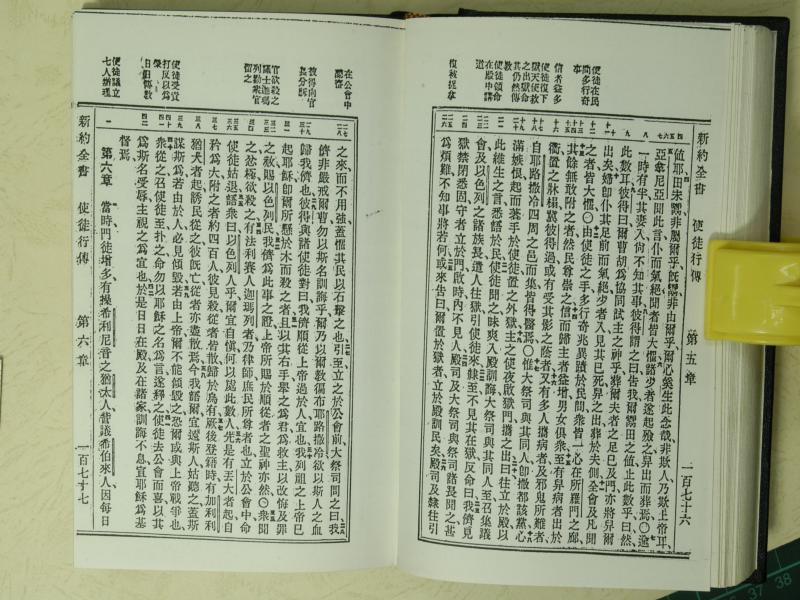 使徒在民間多行奇事
信者益多
使徒復下獄天使救之出獄命其仍然傳教
在殿中講道
復被捉拿
新約全書　使徒行傳　第五章　一百七十六
値耶田未鬻非屬爾乎旣鬻非由爾乎爾心奚生此念哉非欺人乃欺上帝耳、
亞拿尼亞聞此言仆而氣絕聞者皆大懼諸少者遂起殮之舁出而葬焉〇逾
一時有半其妻入尙不知其事彼得謂之曰吿我爾鬻田之値止此數乎曰然
此數耳彼得曰爾曹胡爲協同試主之神乎葬爾夫者之足已及門亦將舁爾
出矣婦卽仆其足前而氣絕少者入見其已死舁之出葬於夫側全會及凡聞
之者皆大懼〇由使徒之手多行奇兆異蹟於民間衆皆一心在所羅門之廊、
其餘無敢附之者然民尊崇之信而歸主者益增男女俱衆至有舁病者出於
衢置之牀榻冀彼得過或有受其影之蔭者又有多人攜病者及邪鬼所難者
自耶路撒冷四周之邑而集皆得醫焉〇惟大祭司與其同人卽撒都該黨心
滿嫉恨起而著手於使徒置之外獄主之使夜啟獄門攜之出曰往立於殿以
此維生之言悉語於民使徒聞之昧爽入殿訓誨大祭司與其同人至召集議
會及以色列之諸族長遣人往獄引使徒來隸至不見其在獄反命曰我儕見
獄禁閉悉固守者立於門啟時內不見人殿司及大祭司與祭司諸長聞之甚
爲煩難不知事將若何或來吿曰爾置於獄者立於殿訓民矣殿司及隸往引
在公會中受審
彼得向官長分訴
官欲殺之議士迦瑪列勸衆官釋之
使徒受責打反以爲榮
仍舊傳教
使徒議立七人辦理
之來而不用強蓋懼其民以石擊之也引至立之於公會前大祭司問之曰我
儕非嚴戒爾曹勿以斯名訓誨乎爾乃以爾敎徧布耶路撒冷欲以斯人之血
歸我儕也彼得與諸使徒對曰我儕順從上帝過於人宜也我列祖之上帝已
起耶穌卽爾所懸於木而殺之者且以其右手舉之爲君爲救主以改悔及罪
之赦賜以色列民我儕爲此事之證上帝所賜於順從者之聖神亦然〇衆聞
之忿極欲殺之有法利賽人迦瑪列者乃律師庶民所尊者也立於公會中命
使徒姑退語衆曰以色列人乎爾宜自愼何以處此數人先是有丟大者起自
矜爲大附之者約四百人彼見殺從者皆散歸於烏有厥後登籍時有加利利
猶大者起誘民從之彼旣亡從者亦盡散焉今我語爾宜遠斯人姑聽之蓋斯
謀斯爲若由於人必見傾毀若由上帝爾不能傾毀之恐爾或與上帝戰爭也
衆從之召使徒至扑之命勿以耶穌之名爲言遂釋之使徒去公會而喜以其
爲斯名受辱主視之爲宜也於是日日在殿及在諸家訓誨不息宣耶穌爲基
督焉、
第六章　當時門徒增多有操希利尼音之猶太人訾議希伯來人因每日
新約全書　使徒行傳　第六章　一百七十七